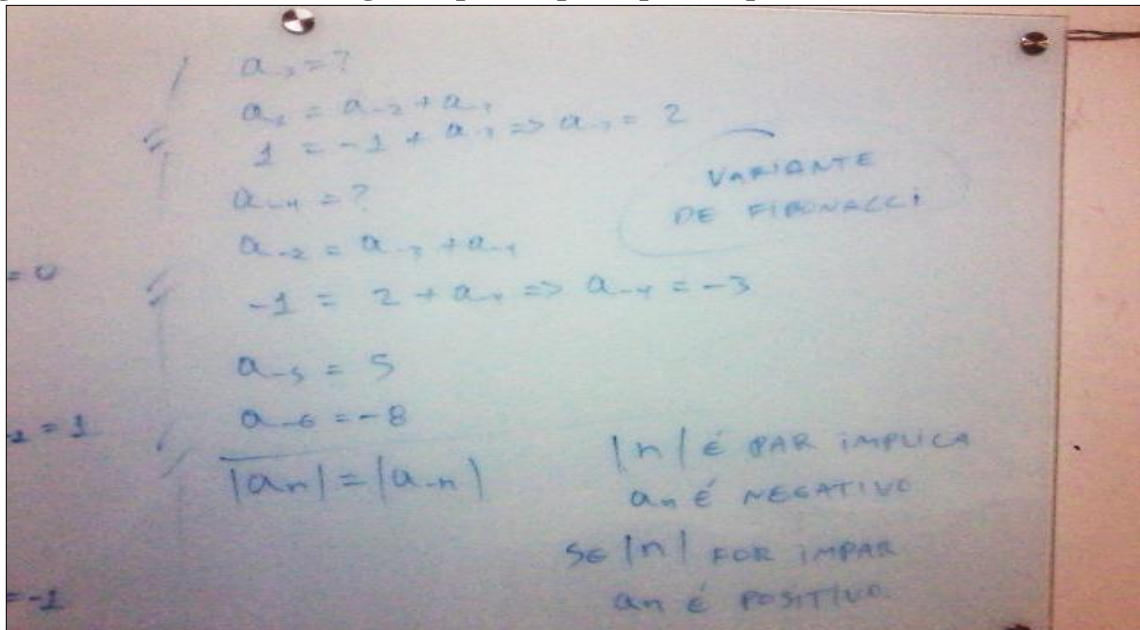 a₋₃ = ?
a₋₁ = a₋₂ + a₋₃
1 = -1 + a₋₃ => a₋₃ = 2
a₋₄ = ?
a₋₂ = a₋₃ + a₋₄
-1 = 2 + a₋₄ => a₋₄ = -3
a₋₅ = 5
a₋₆ = -8
|aₙ| = |a₋ₙ|
VARIANTE
DE FIBONACCI
|n| É PAR IMPLICA
aₙ É NEGATIVO
SE |n| FOR IMPAR
aₙ É POSITIVO.
= 0
₂ = 1
= -1